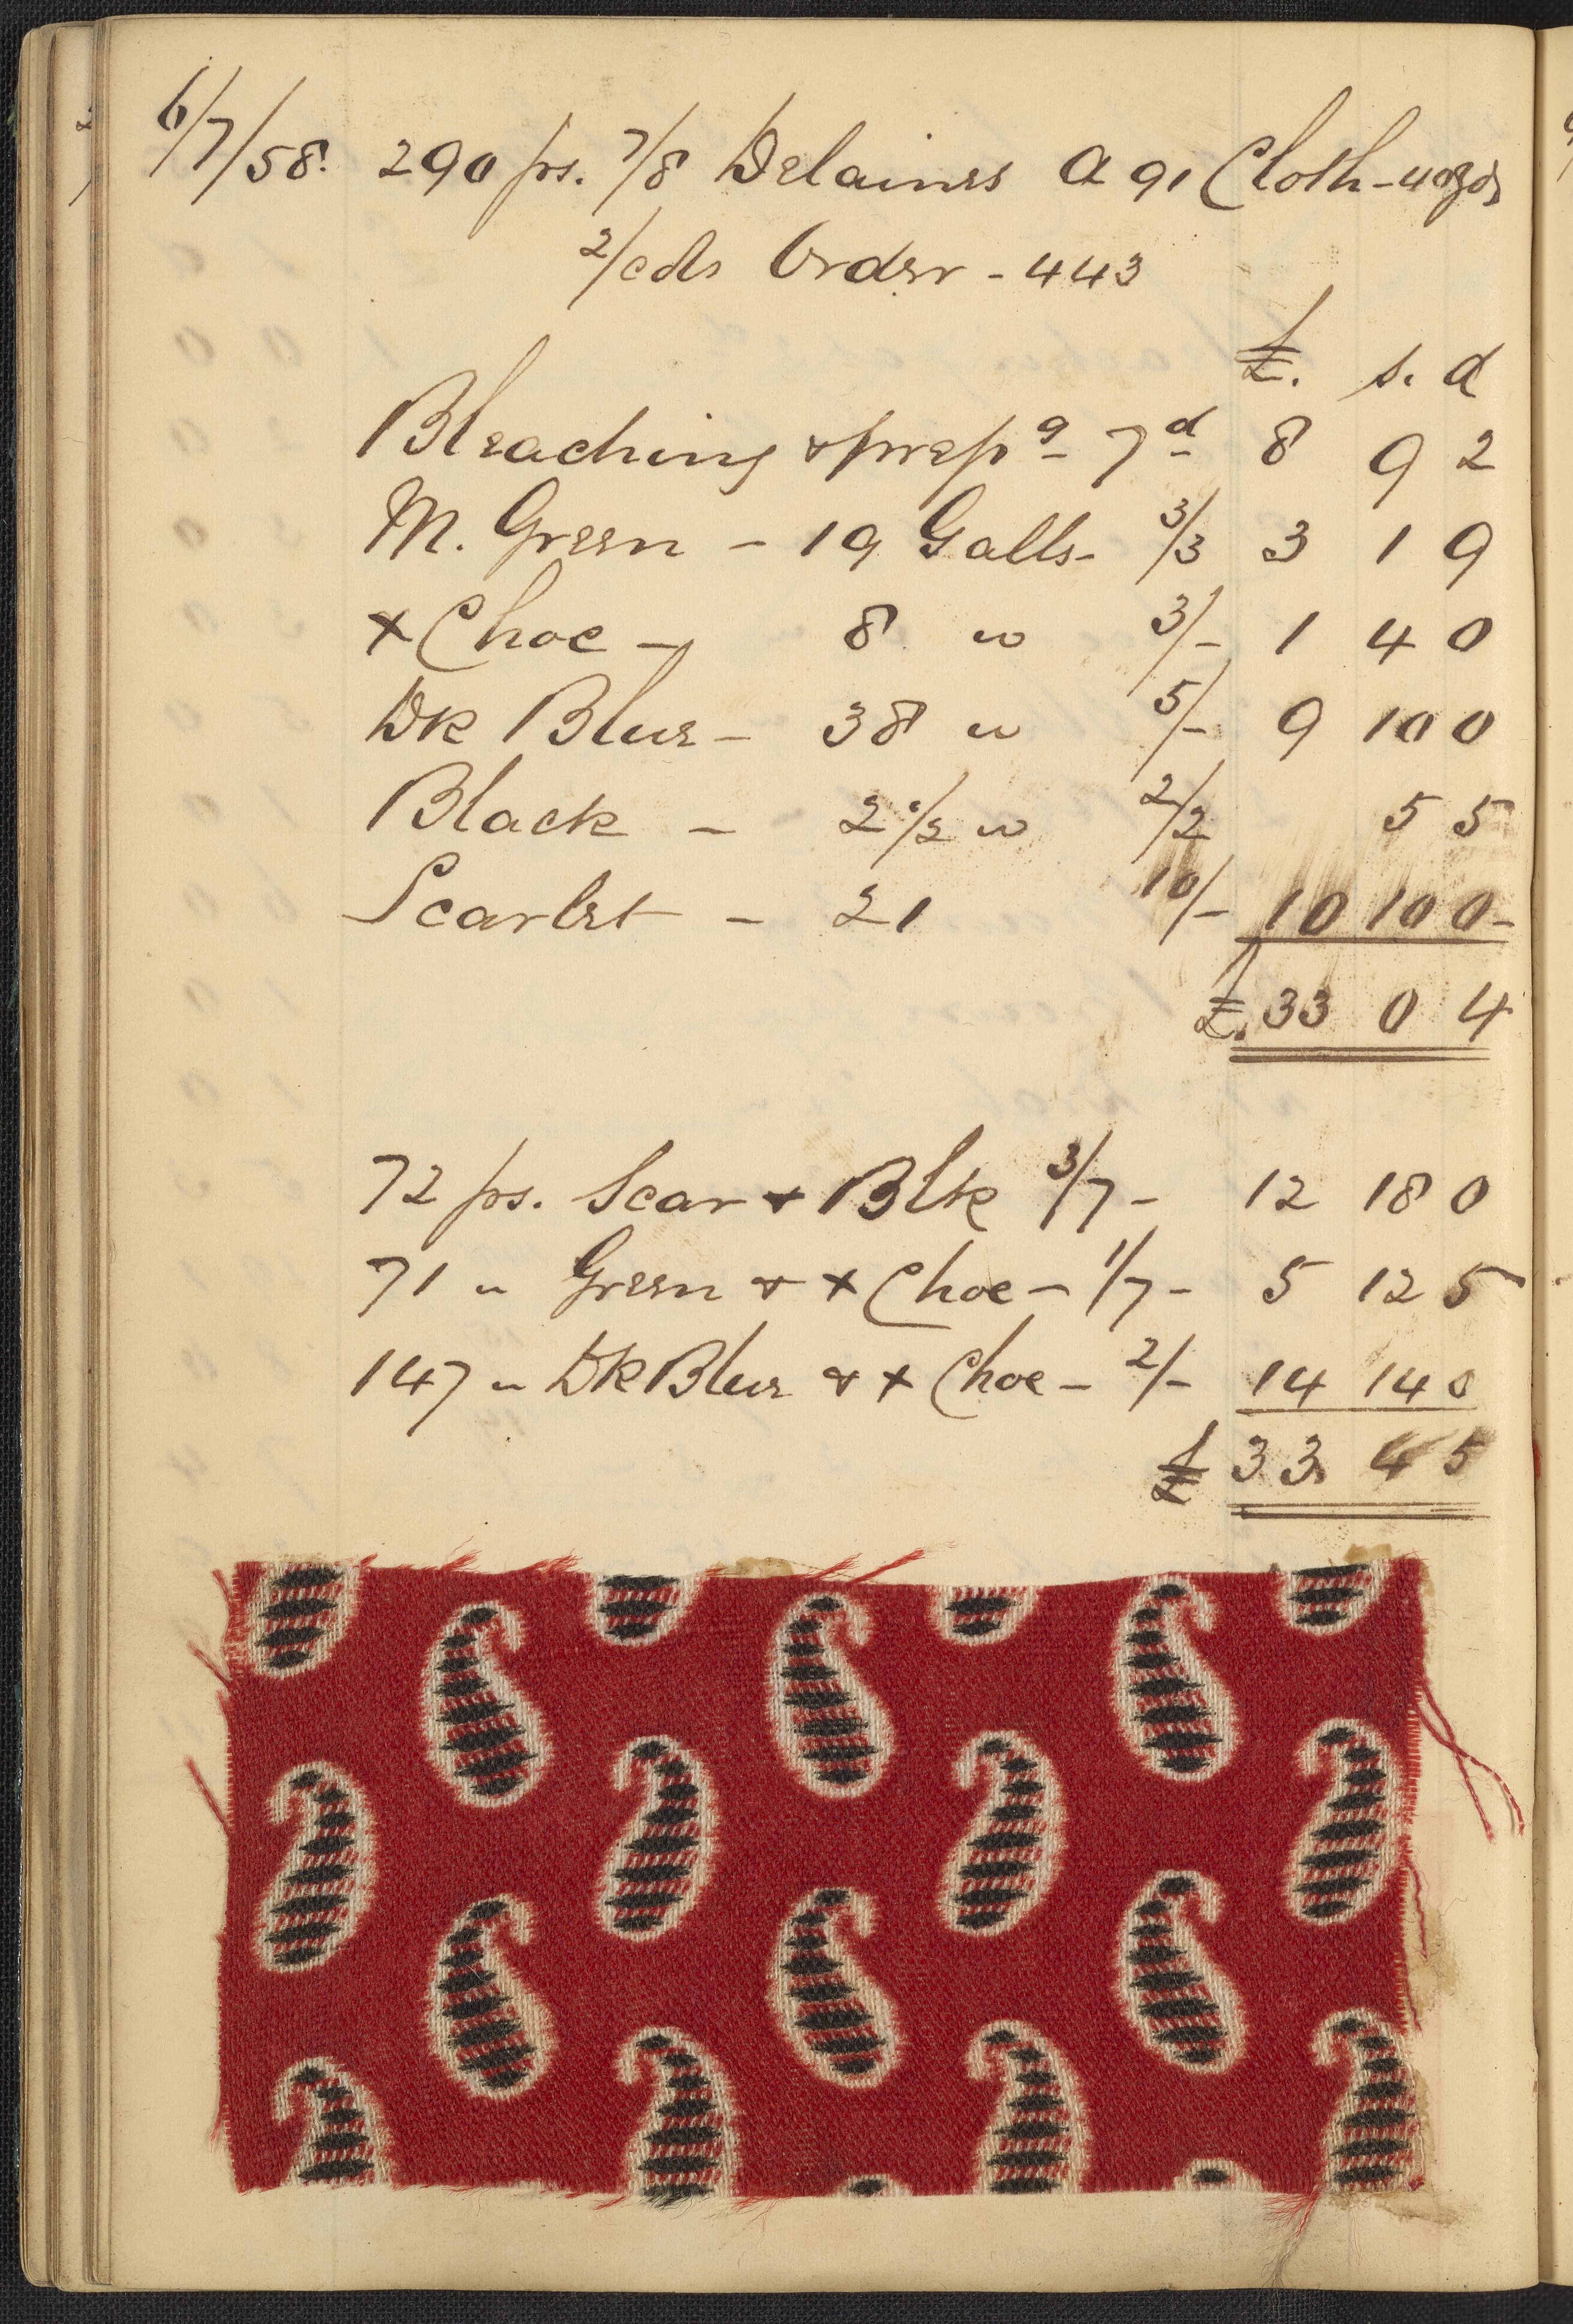 6/7/58. 290 ps. 7/8 Delaines A 91 Cloth - 40yds
2/cols Order - 443
£. s. d
Bleaching & prepg 7d 8 9 2
M. Green - 19 Galls - 3/3 3 1 9
x Choc - 8 " 3/- 1 4 0
Dk Blue - 38 " 5/- 9 10 0
Black - 2 1/2 " 2/2 5 5
Scarlet - 21 10/- 10 10 0 -
£. 33 0 4
72 ps. Scar & Blk 3/7 - 12 18 0
71 " Green & x Choc - 1/7 - 5 12 5
147 " Dk Blue & x Choc - 2/- 14 14 0
£ 33 4 5